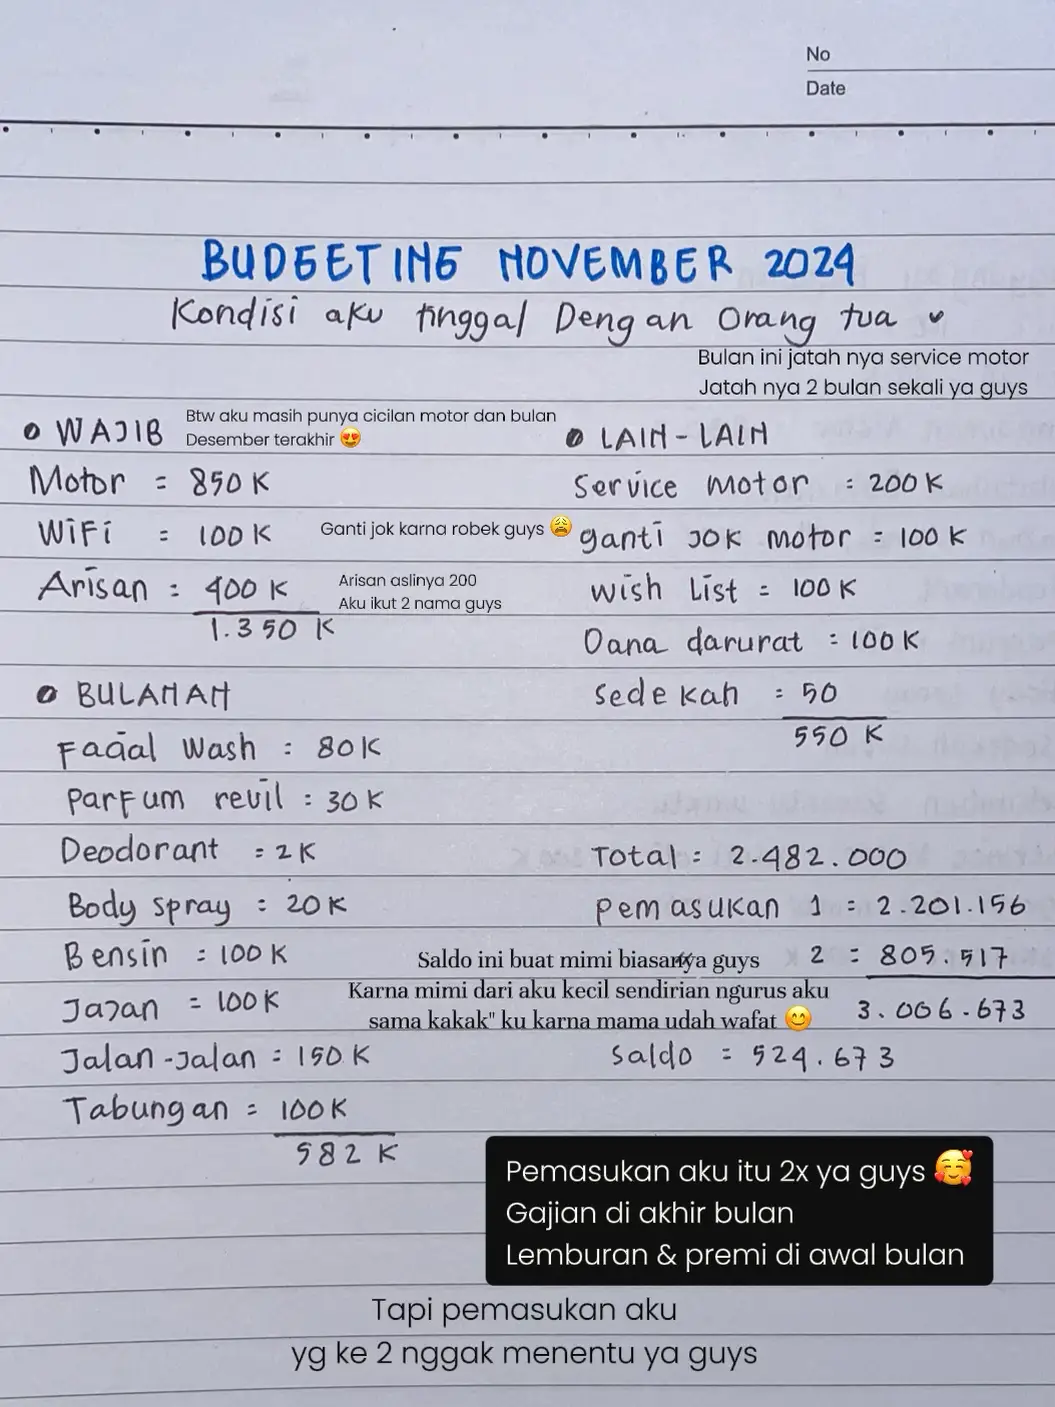 No
Date
BUDGETING NOVEMBER 2024
Kondisi aku tinggal Dengan Orang tua
Bulan ini jatah nya service motor
Jatah nya 2 bulan sekali ya guys
WAJIB
Btw aku masih punya cicilan motor dan bulan
Desember terakhir 😍
Motor = 850 K
WiFi = 100 K
Arisan = 400 K
Arisan aslinya 200
Aku ikut 2 nama guys
1.350 K
LAIN - LAIN
Service motor = 200 K
Ganti jok karna robek guys 😩
ganti JOK motor = 100 K
wish List = 100 K
Dana darurat = 100 K
Sedekah = 50
550 K
BULANAN
Facial Wash : 80 K
Parfum revil : 30 K
Deodorant = 2 K
Body Spray : 20 K
Bensin = 100 K
Jajan = 100 K
Jalan-Jalan = 150 K
Tabungan = 100 K
582 K
Total = 2.482.000
pemasukan 1 = 2.201.156
2 = 805.517
3.006.673
Saldo ini buat mimi biasanya guys
Karna mimi dari aku kecil sendirian ngurus aku
sama kakak" ku karna mama udah wafat 😊
Saldo = 524.673
Pemasukan aku itu 2x ya guys 🥰
Gajian di akhir bulan
Lemburan & premi di awal bulan
Tapi pemasukan aku
yg ke 2 nggak menentu ya guys